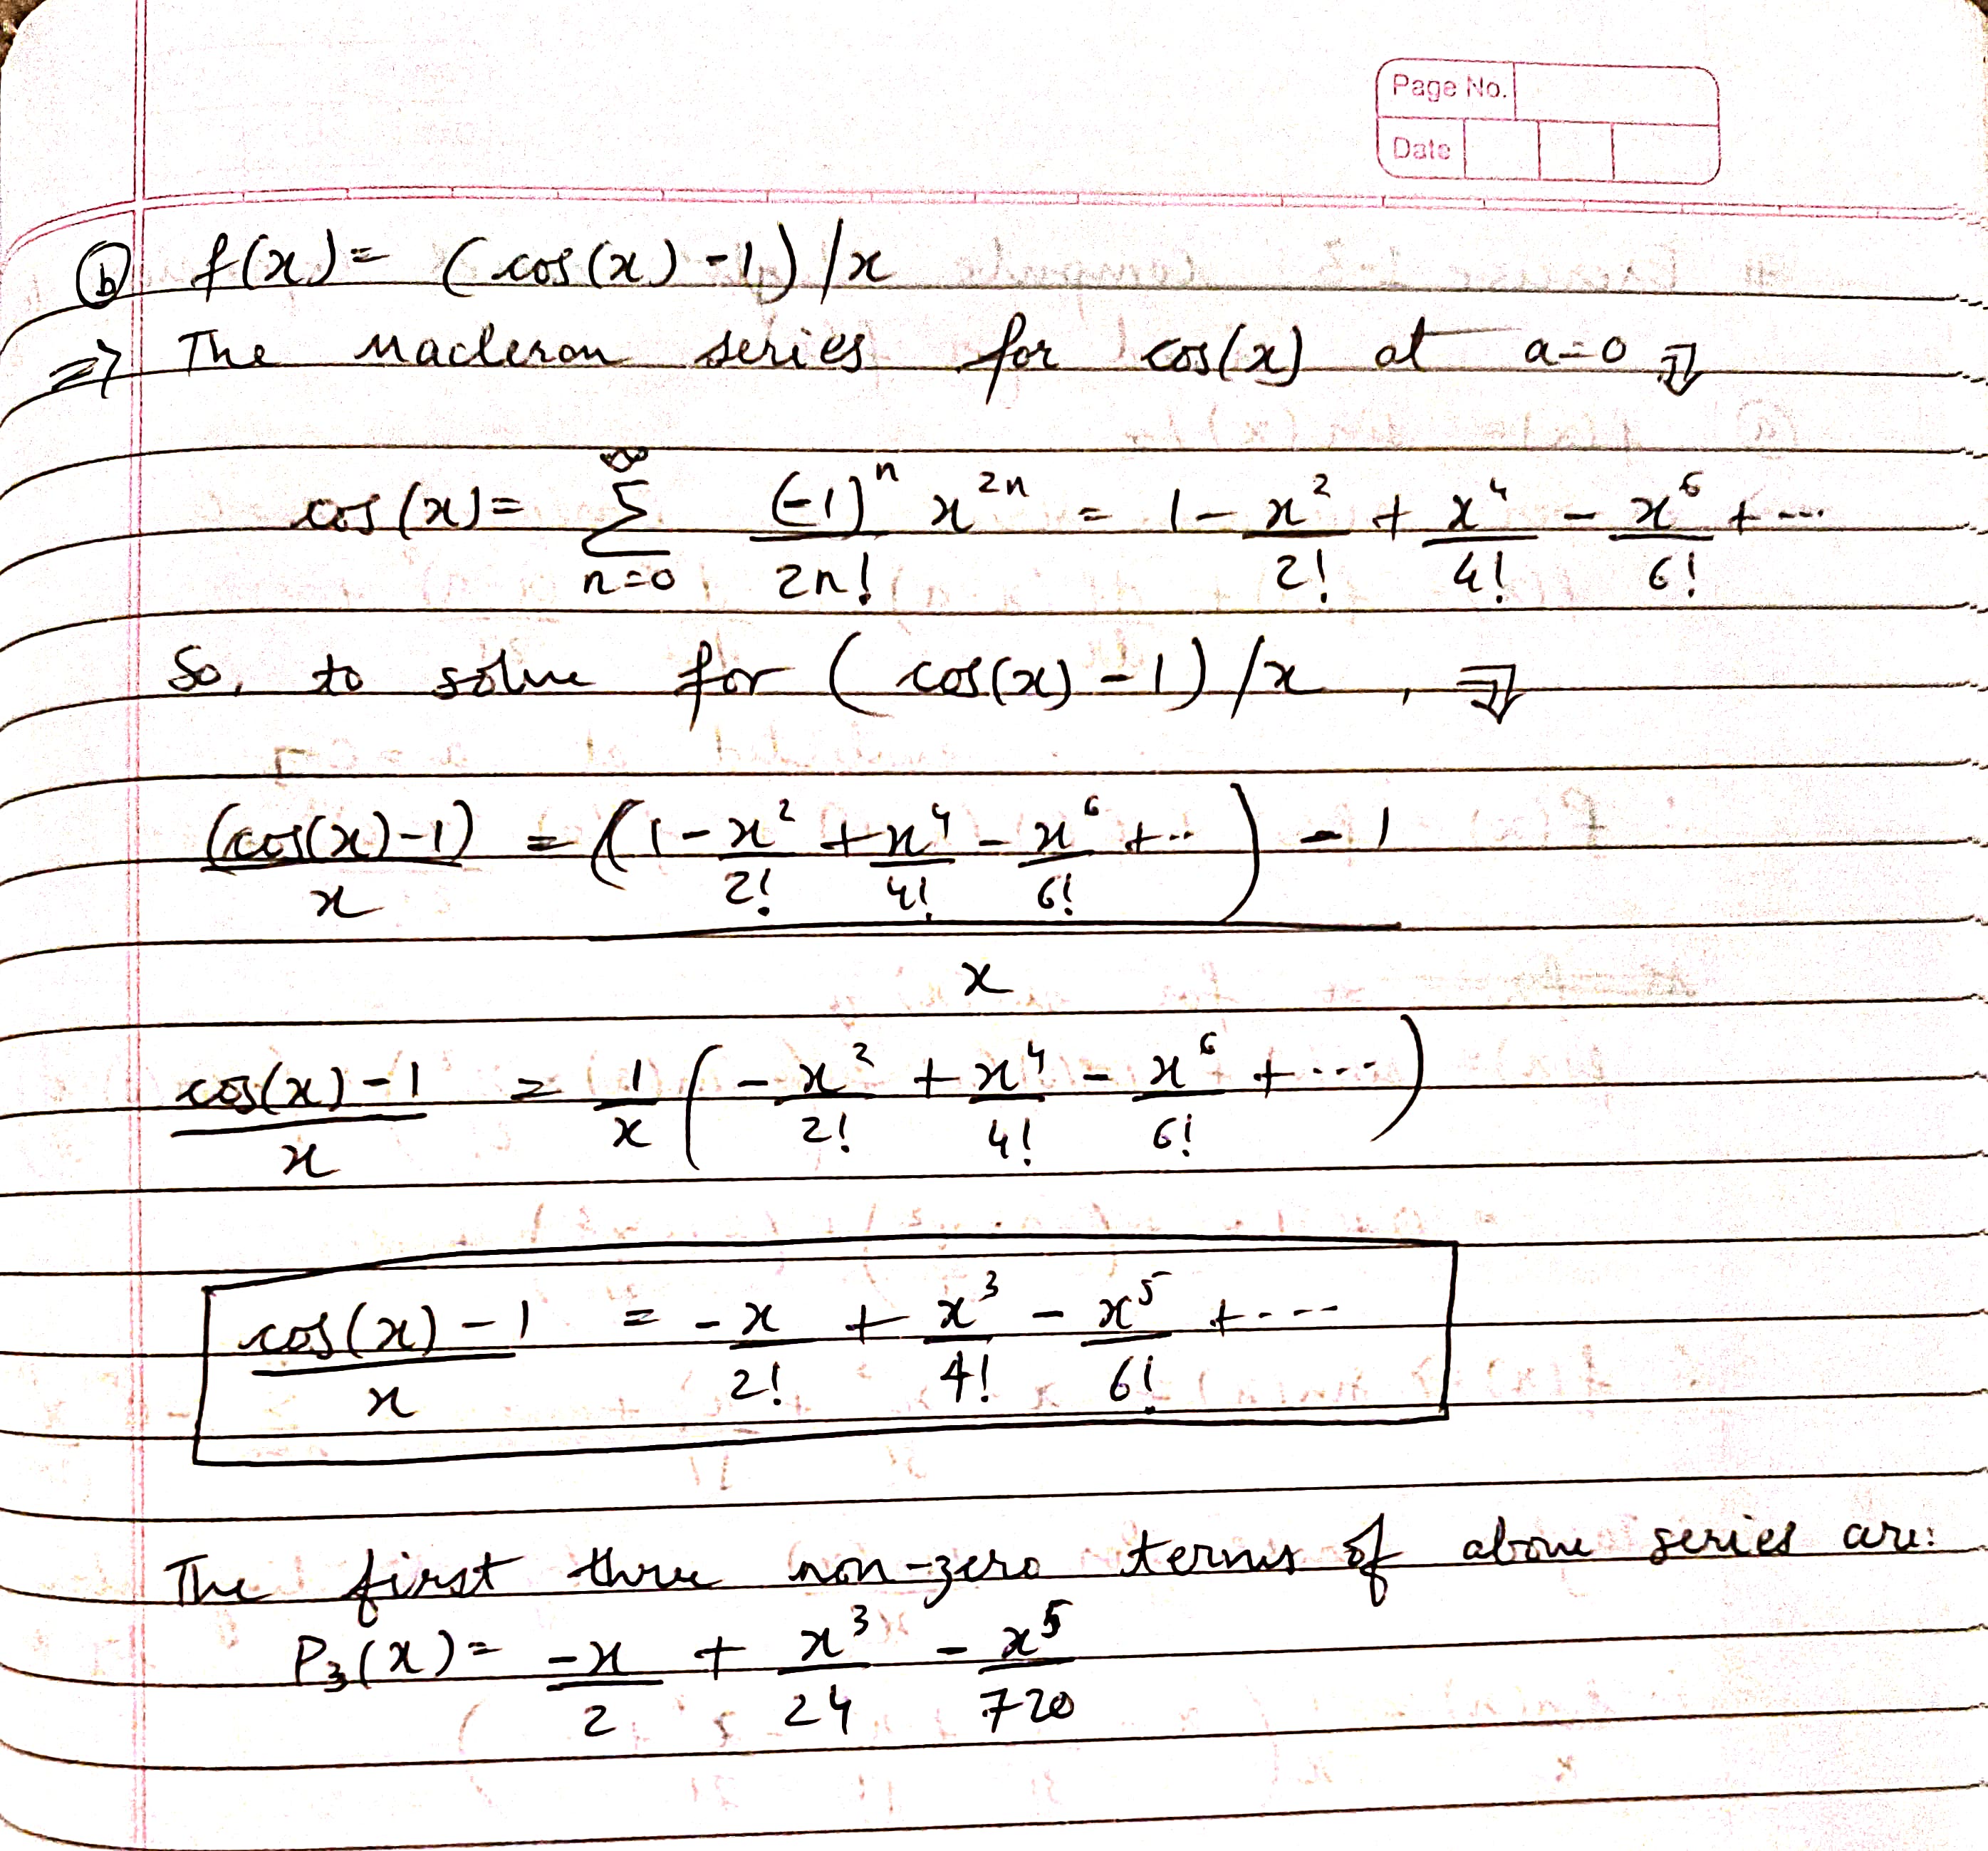 Page No.
Date
ⓑ f(x) = (cos(x) -1) /x
=> The Macleron series for cos(x) at a=0 ⇓
cos(x) = ∞ Σ n=0 (-1)^n x^2n / 2n! = 1 - x^2/2! + x^4/4! - x^6/6! + ...
So, to solve for (cos(x) -1) /x , ⇓
(cos(x)-1)/x = ((1 - x^2/2! + x^4/4! - x^6/6! + ..) - 1)/x
cos(x)-1/x = 1/x (-x^2/2! + x^4/4! - x^6/6! + ...)
cos(x)-1/x = -x/2! + x^3/4! - x^5/6! + ....
The first three non-zero terms of above series are:
P3(x) = -x/2 + x^3/24 - x^5/720